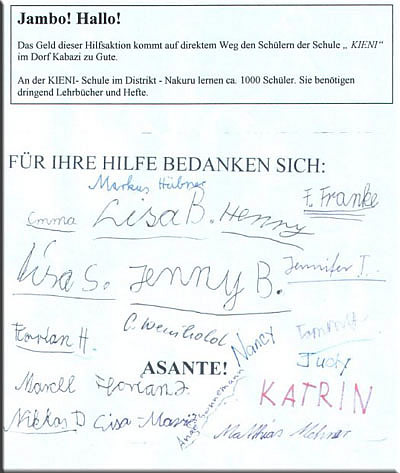 Jambo! Hallo!
Das Geld dieser Hilfsaktion kommt auf direktem Weg den Schülern der Schule „ KIENI“
im Dorf Kabazi zu Gute.
An der KIENI- Schule im Distrikt - Nakuru lernen ca. 1000 Schüler. Sie benötigen
dringend Lehrbücher und Hefte.
FÜR IHRE HILFE BEDANKEN SICH:
Markus Hübner
F. Franke
Emma Lisa B. Henny
Lisa S. Jenny B. Jennifer T.
Florian H. C. Weinhold Nancy Tommy H.
ASANTE! Judy
Marcel Florian J. KATRIN
Niklas D Lisa-Marie
Matthias